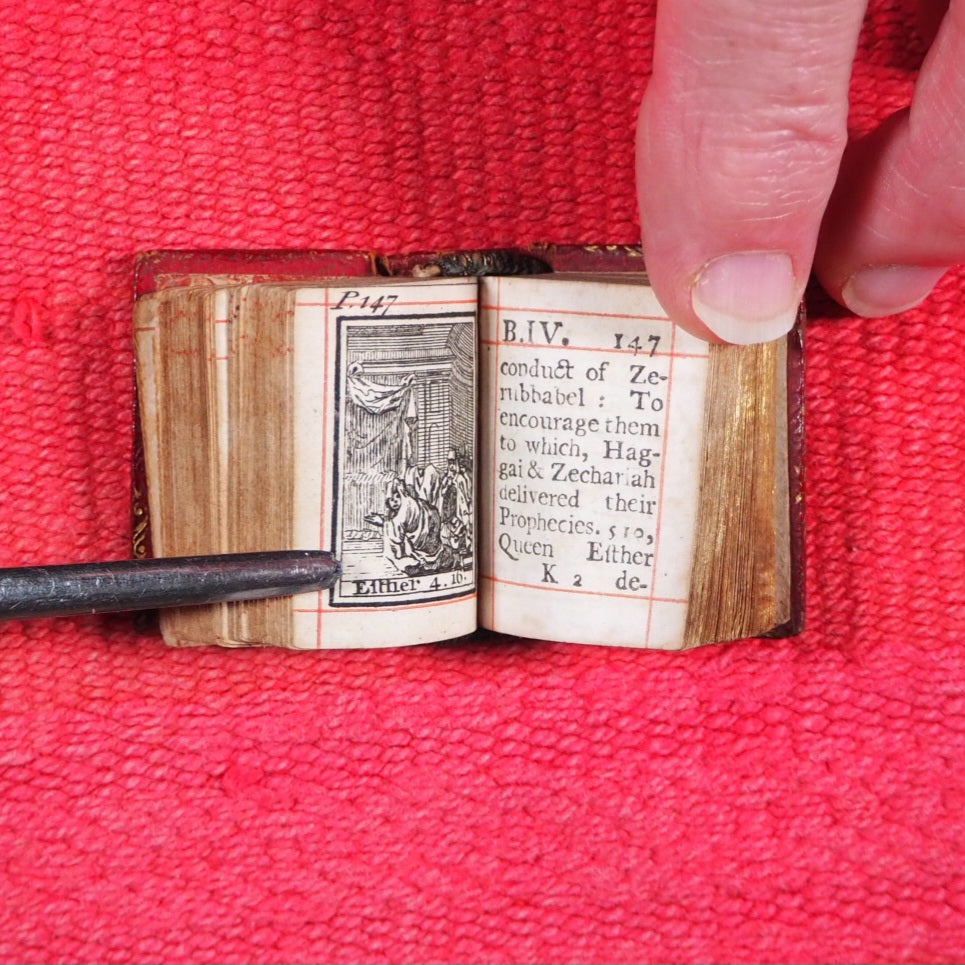 P. 147
Eſther 4. 16.
B.IV. 147
conduct of Ze-
rubbabel : To
encourage them
to which, Hag-
gai & Zechariah
delivered their
Prophecies. 510,
Queen Eſther
K 2 de-